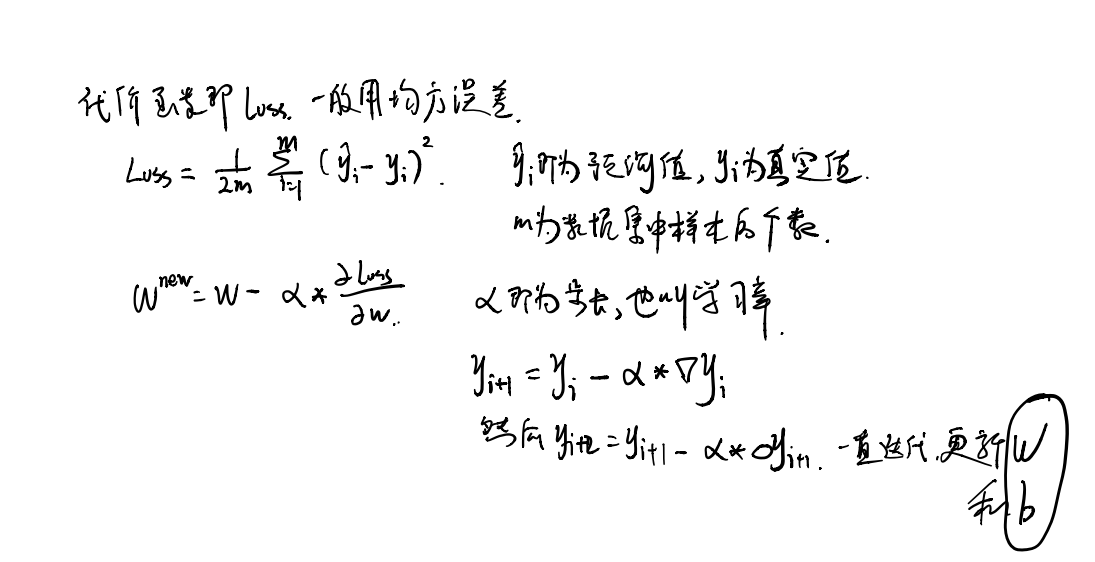 代价函数即Loss. 一般用均方误差.
Loss = \frac{1}{2m} \sum_{i=1}^{m} (ŷ_i - y_i)^2. ŷ_i即为预测值, y_i为真实值.
m为数据集中样本的个数.
w^{new} = w - α * \frac{∂Loss}{∂w}. α即为步长, 也叫学习率.
y_{i+1} = y_i - α * ∇y_i
然后 y_{i+2} = y_{i+1} - α * ∇y_{i+1}. 一直迭代, 更新 w
和 b